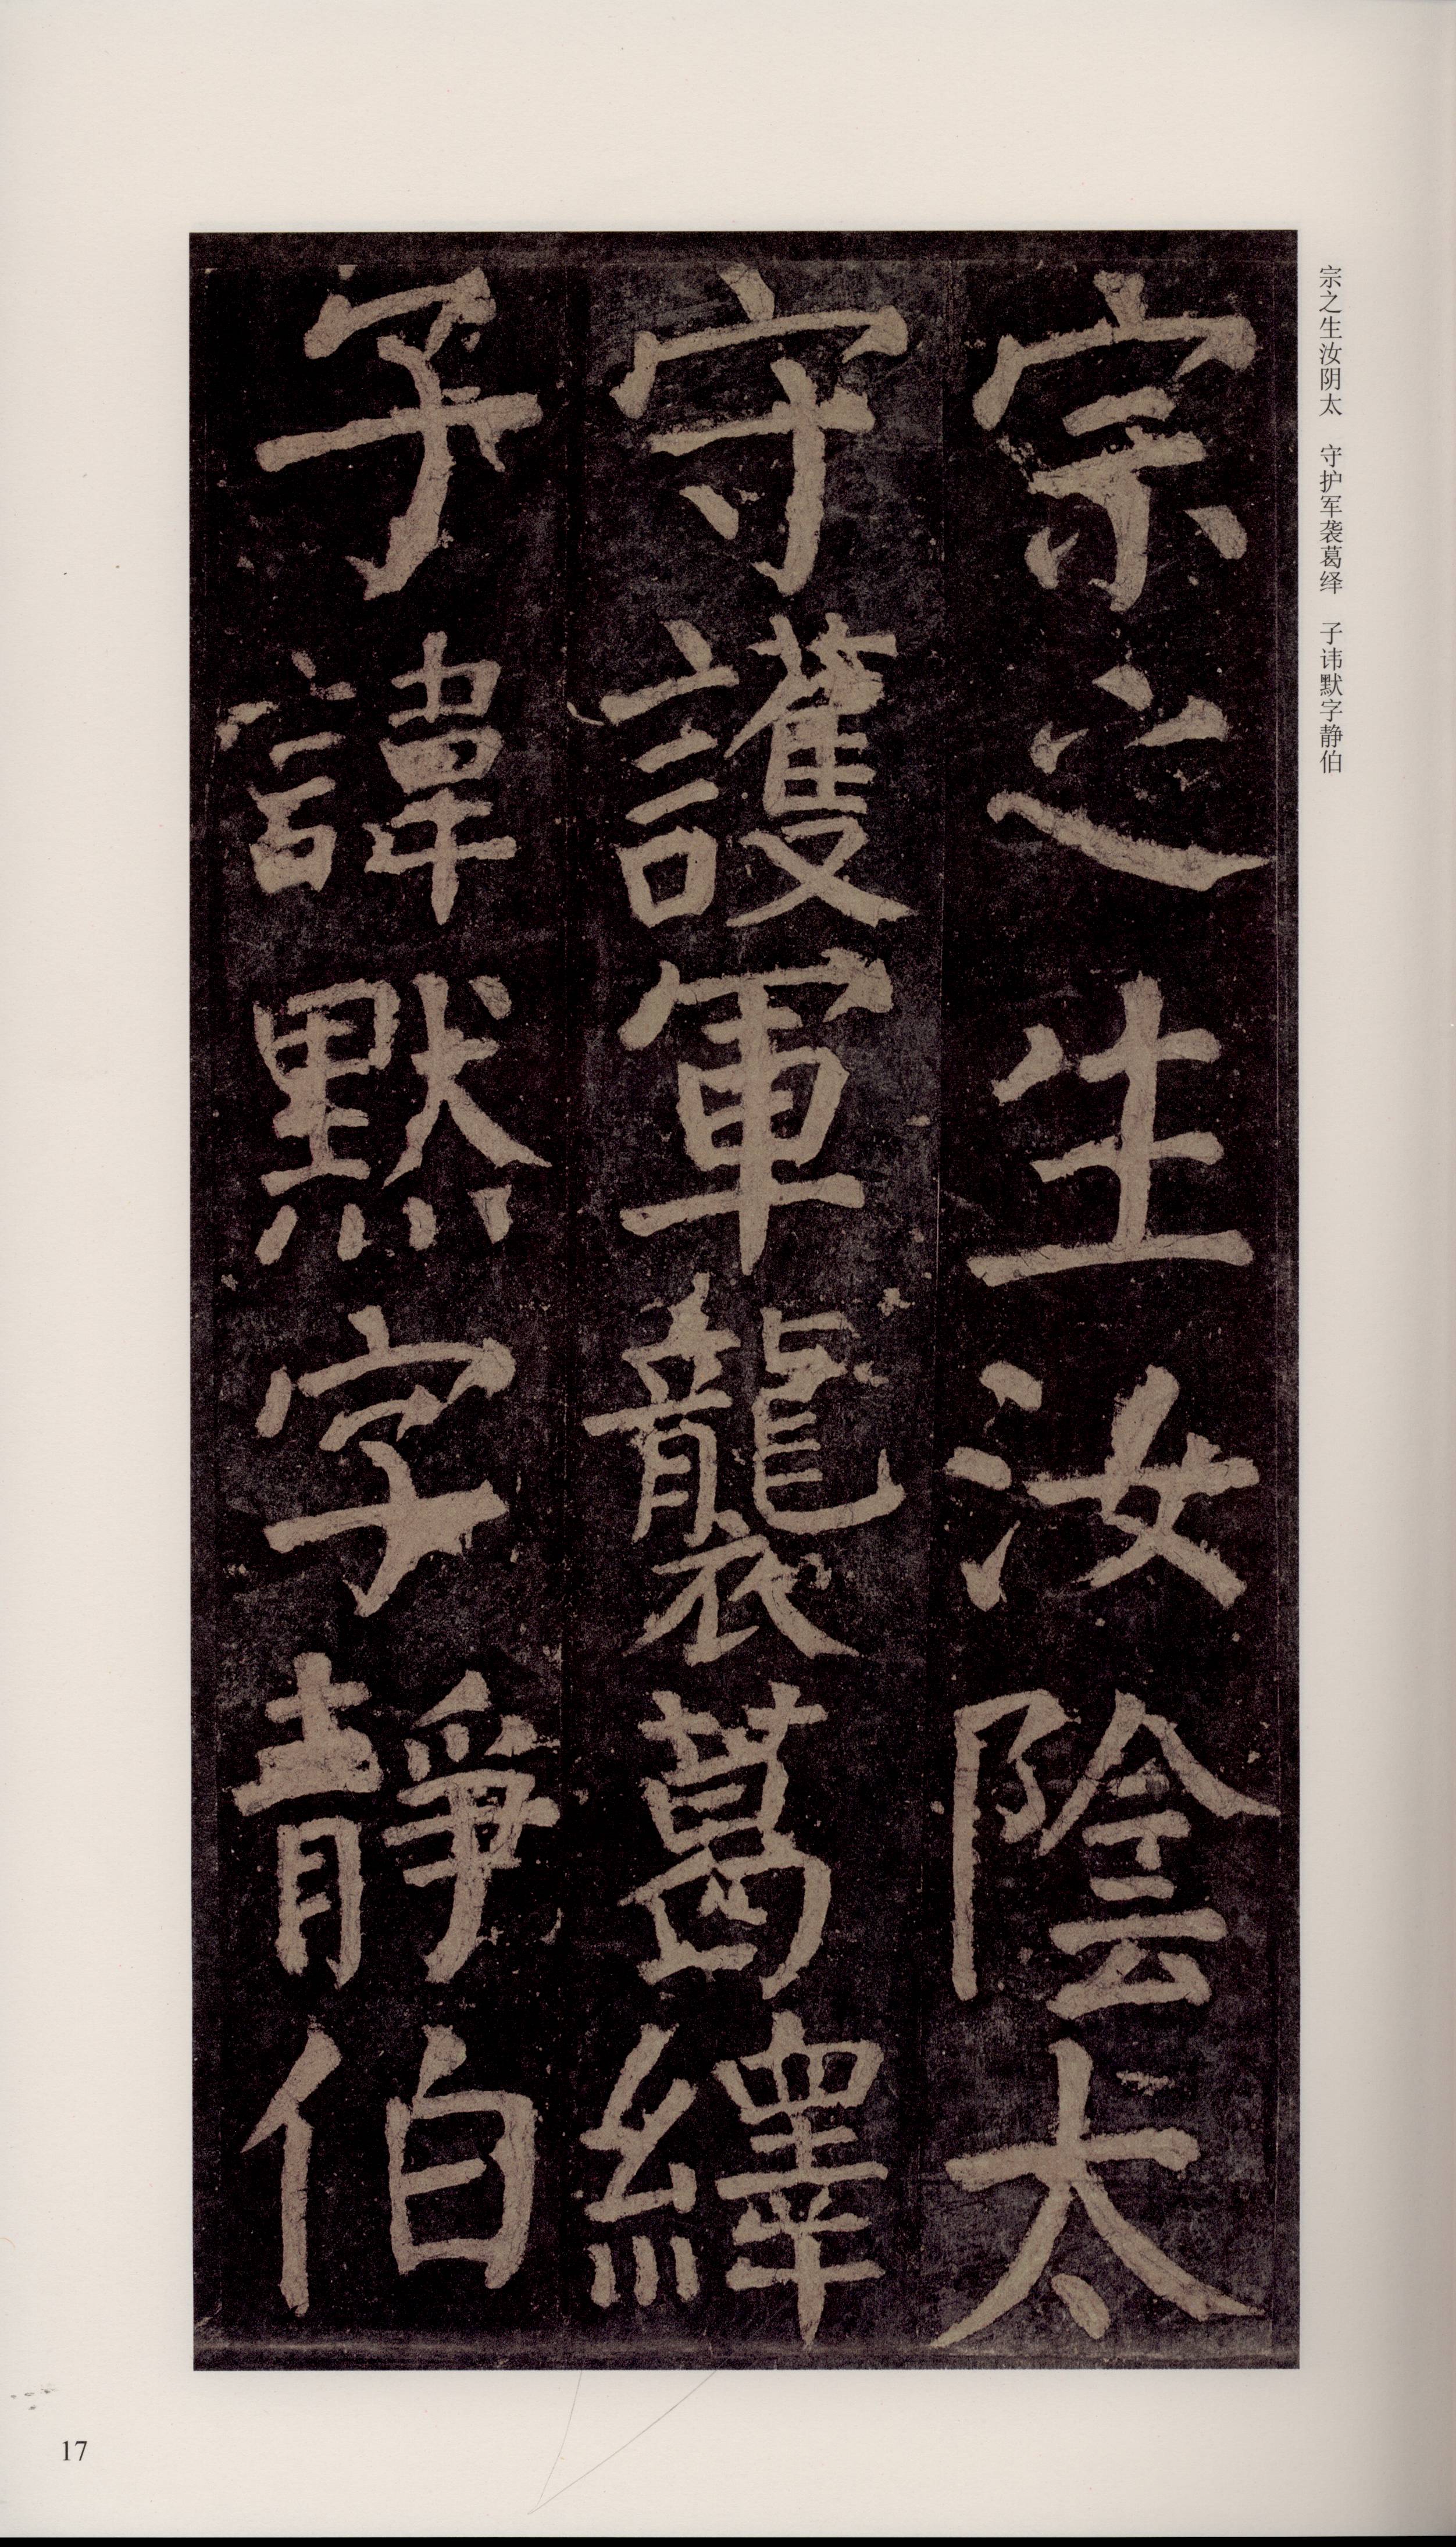 宗之生汝陰太
守護軍襲葛繹
子諱默字靜伯
宗之生汝阴太 守护军袭葛绎 子讳默字静伯
17